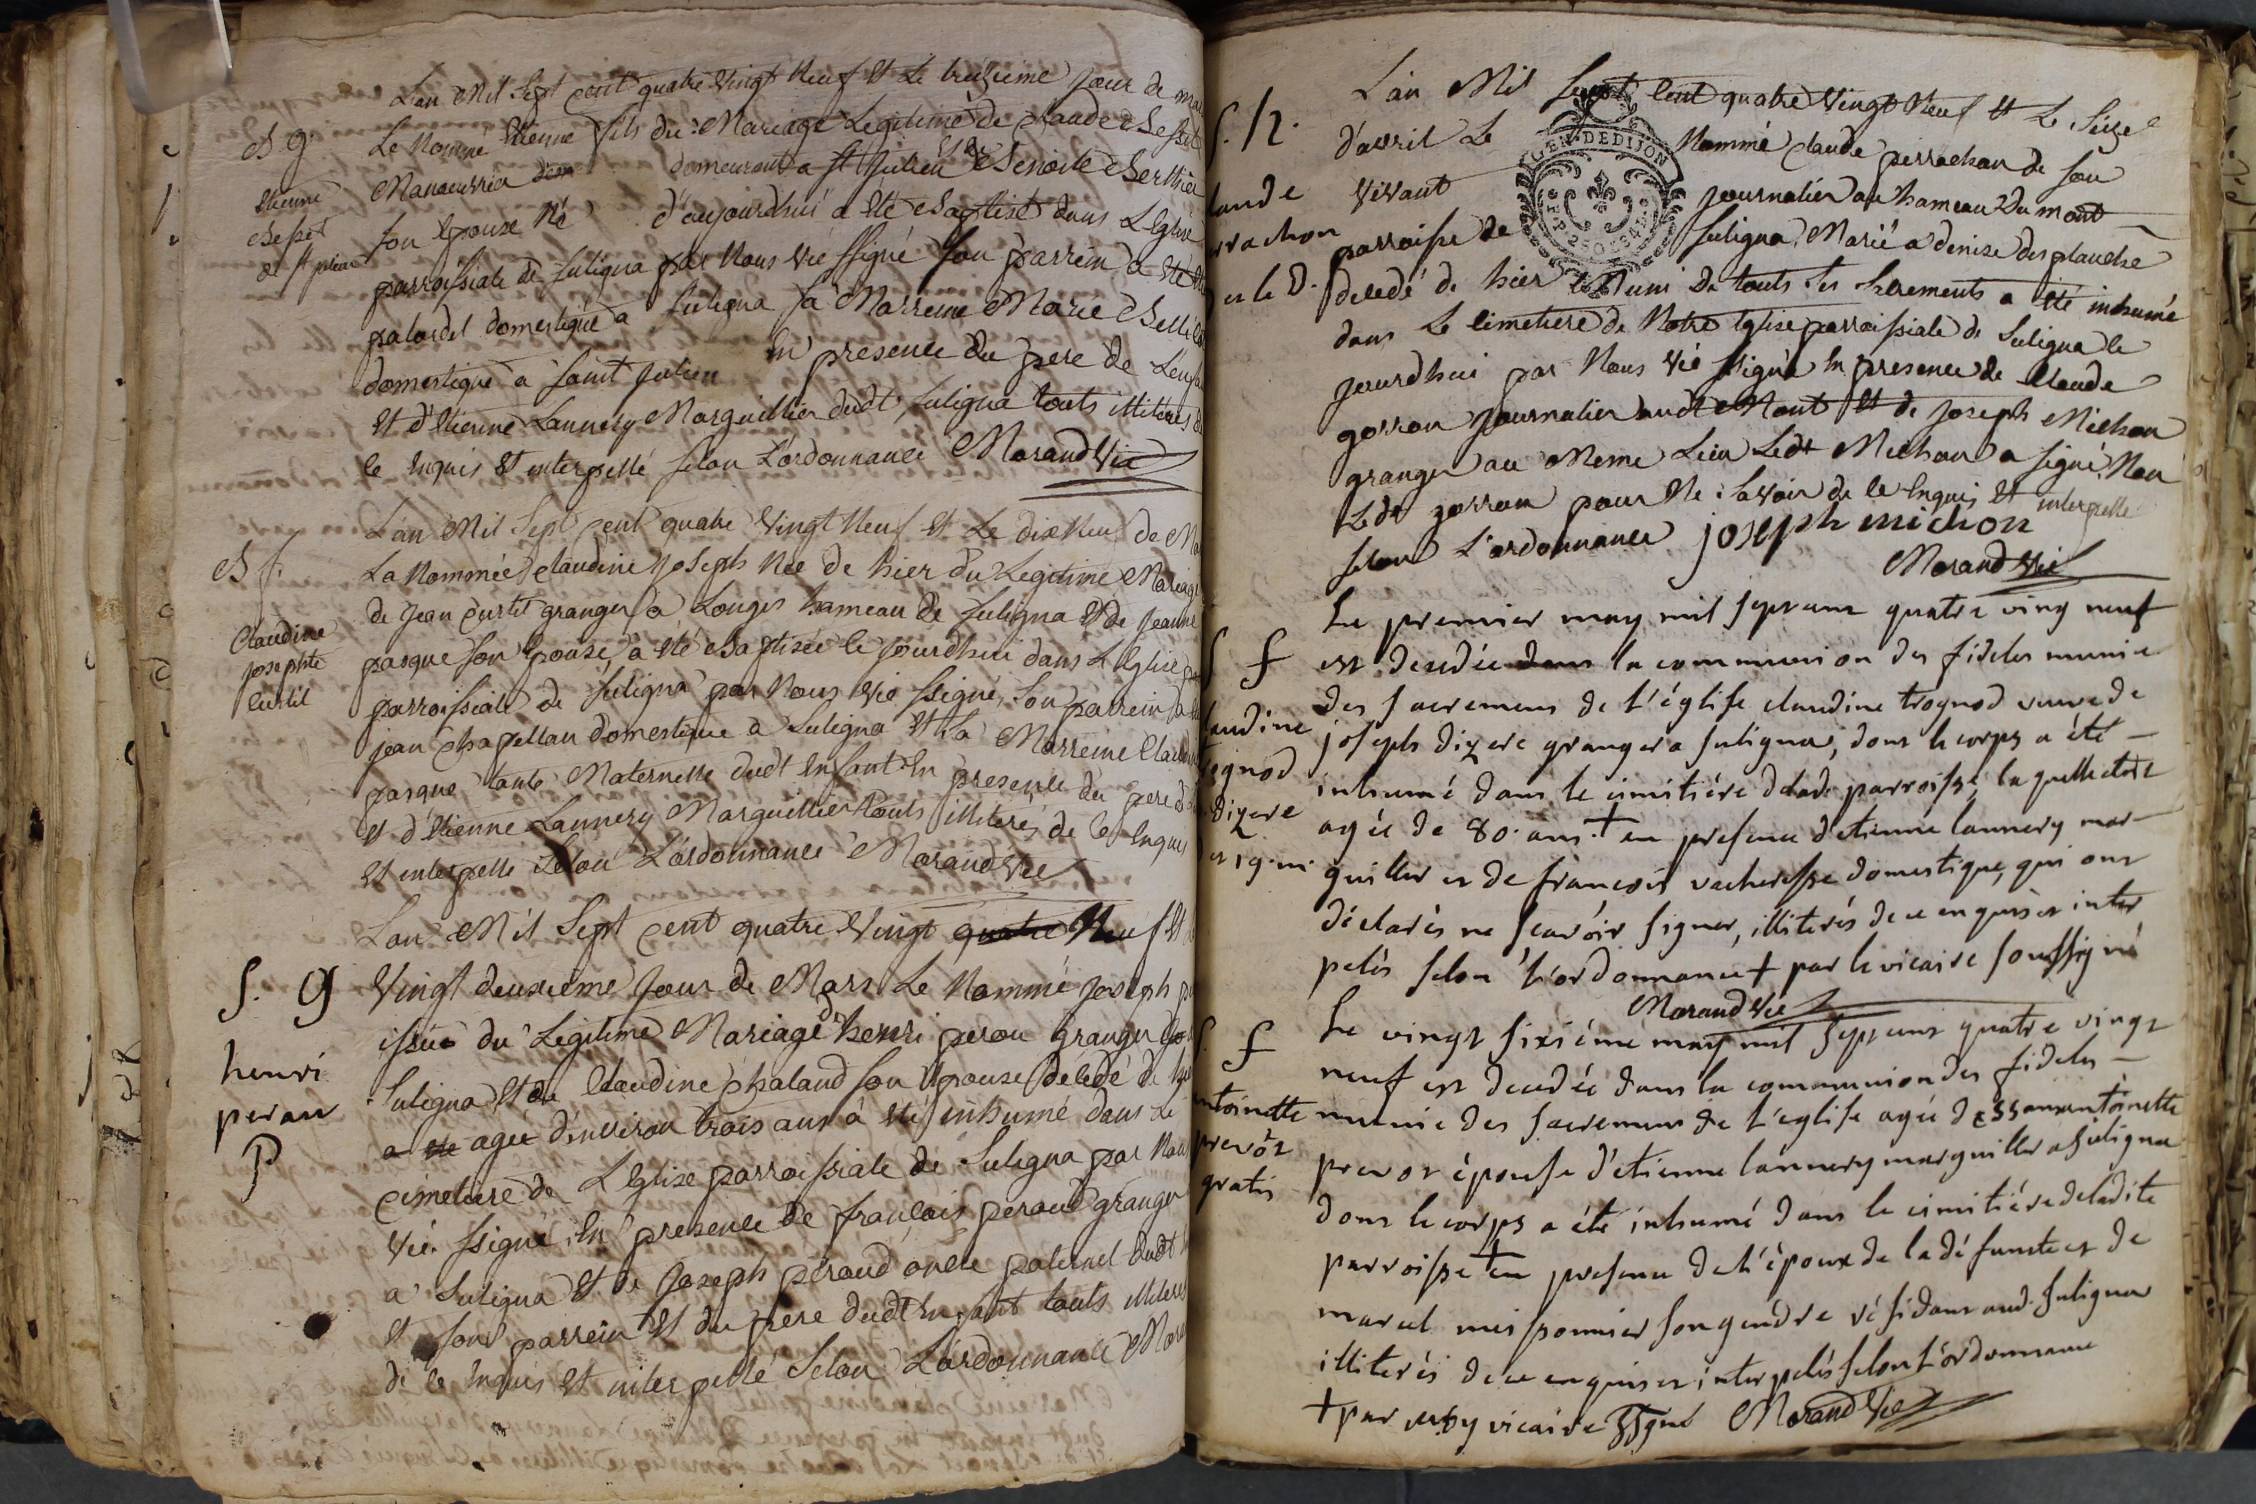 L'an Mil Sept cent quatre vingt Neuf Et Le treizieme jour de
B g. Le Nommé Etienne fils du Mariage Legitime de Claude
Etienne Manoeuvrier demeurant a St Julien Et de Benoite Berthier
son Epouse Né d'aujourdhui a Eté Baptisé dans L'Eglise
de St julien parroissiale de Suligna par Nous Vic ssigné son parrein a Eté
domestique a Suligna sa Marreine Marie
domestique a saint Julien En presence du pere de L'enfa
Et d'Etienne Lannery Marguillier dudt Suligna touts illiterés
ce Enquis Et interpellé selon L'ordonnance Morand Vic
L'an Mil Sept Cent quatre Vingt Neuf Et Le dix Neuf de
B f. La Nommée Claudine Joseph Née de hier du Legitime Mariage
de Jean Curtil granger a Longes hameau de Suligna Et de Jeanne
Claudine pasque son Epouse, a Eté Baptisée ce jourdhui dans L'Eglise
josephte parroissiale de Suligna par Nous Vic ssigné, son parrein
Curtil jean Chapellan domestique a Suligna Et La Marreine
pasque tante Maternelle dudt Enfant En presence du pere
Et d'Etienne Lannery Marguillier touts illiterés de ce Enquis
Et interpellé selon L'ordonnance Morand Vic
L'an Mil Sept Cent quatre Vingt quatre Neuf Et
S. g Vingt deuxieme Jour de Mars Le Nommé Joseph
issue du Legitime Mariage d'henri peron Granger
henri Suligna Et de Claudine Chaland son Epouse décédé de
peran a eté agée d'environ trois ans a Eté inhumé dans Le
P Cimetiere de L'Eglise parroissiale de Suligna par Nous
Vic. ssigné, En presence de françois peraud granger
a Suligna Et de Joseph peraud oncle paternel dudt
Et son parrein Et du pere dudt Enfant touts illiterés
de ce Enquis Et interpellé Selon L'ordonnance
L'an Mil Sept Cent quatre Vingt Neuf Et Le Seize
S. h. d'avril Le Nommé Claude perrachon de son
GEN. DE DIJON
vivant journalier au hameau du mont
parroisse de Suligna Marié a denise desplanche
décédé de hier Et Muni de touts ses Sacrements a Eté inhumé
dans Le Cimetiere de Notre Eglise parroissiale de Suligna ce
jourdhui par Nous Vic ssigné En presence de Claude
gorron Journalier audt Mont Et de Joseph Michon
granger au Meme Lieu Ledt Michon a signé Non
Ledt gorron pour Ne savoir de ce Enquis Et interpellé
selon L'ordonnance joseph michon
Morand Vic
Le premier may mil sept cent quatre ving neuf
S f est decedée dans la communion des fideles munie
des sacremens de l'église claudine trognod veuve de
audine joseph dizere granger a suligna, dont le corps a été
inhumé dans le cimitiére de lad. parroisse, laquelle etoit
dizere agée de 80. ans + en presence d'etienne lannery mar-
guiller et de francois vacheresse domestique, qui ont
déclarés ne scavoir signer, illiterés de ce enquis et inter
pelés selon l'ordonnance + par le vicaire soussigné
Morand Vic
S. f Le vingt sixiéme may mil sept cent quatre vingt
neuf est decedée dans la communion des fideles
ntoinette munie des sacremens de l'eglise agée de 55 ans antoinette
prevôt prevot épouse d'etienne lannery marguiller a Suligna
gratis dont le corps a été inhumé dans le cimitiére de ladite
parroisse + en presence de l'époux de la défunte et de
marcel son gendre résidant aud. suligna
illiterés de ce enquis et interpelés selon l'ordonnance
+ par vicaire ssigné Morand Vic